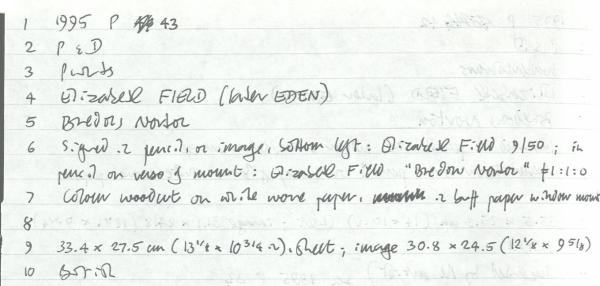 1 1995 P 43
2 P & D
3 Prints
4 Elizabeth FIELD (later EDEN)
5 Bredon, Norton
6 Signed in pencil, on image, bottom left: Elizabeth Field 9/50; in
pencil on verso of mount: Elizabeth Field "Bredon Norton" £1:1:0
7 Colour woodcut on white wove paper, in buff paper window mount
8
9 33.4 x 27.5 cm (13 1/8 x 10 3/4 in). sheet; image 30.8 x 24.5 (12 1/8 x 9 5/8)
10 British